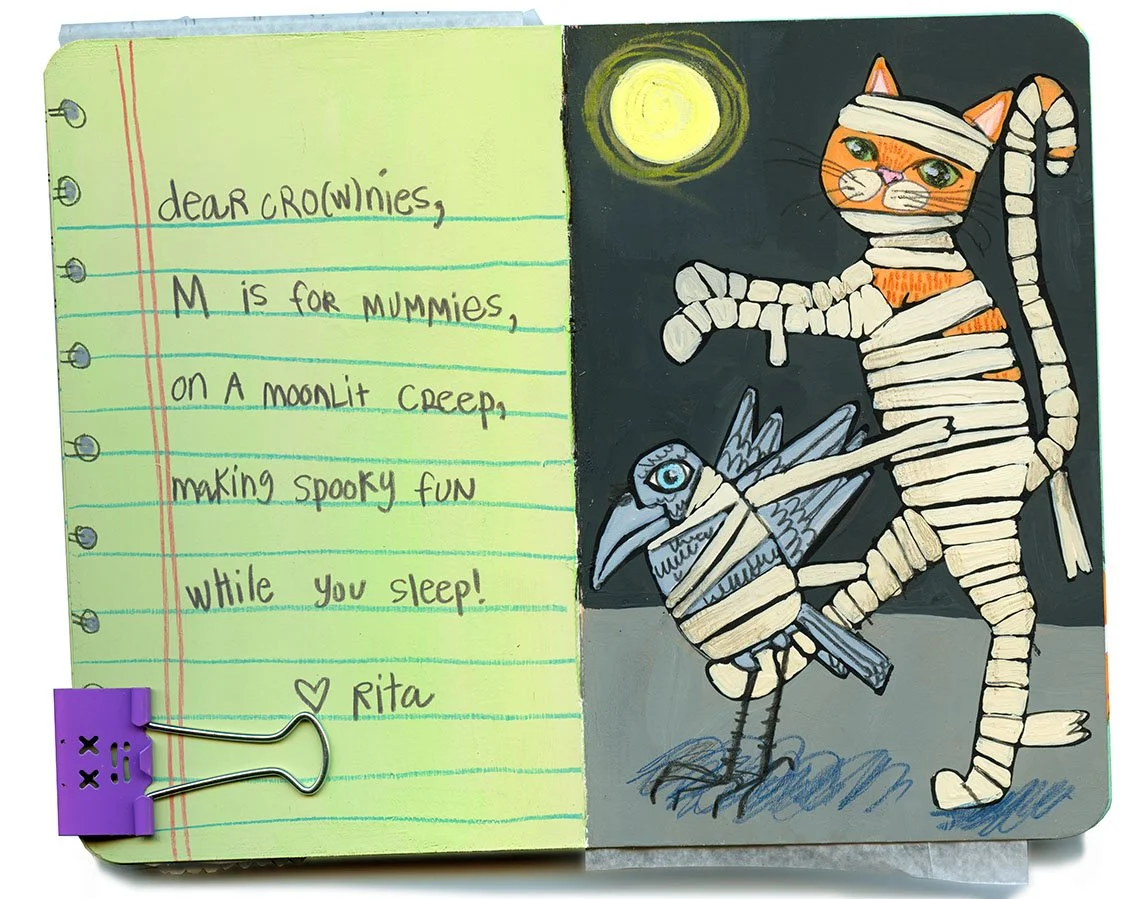 dear cro(w)nies,
M is for mummies,
on a moonlit creep,
making spooky fun
while you sleep!
♡ Rita